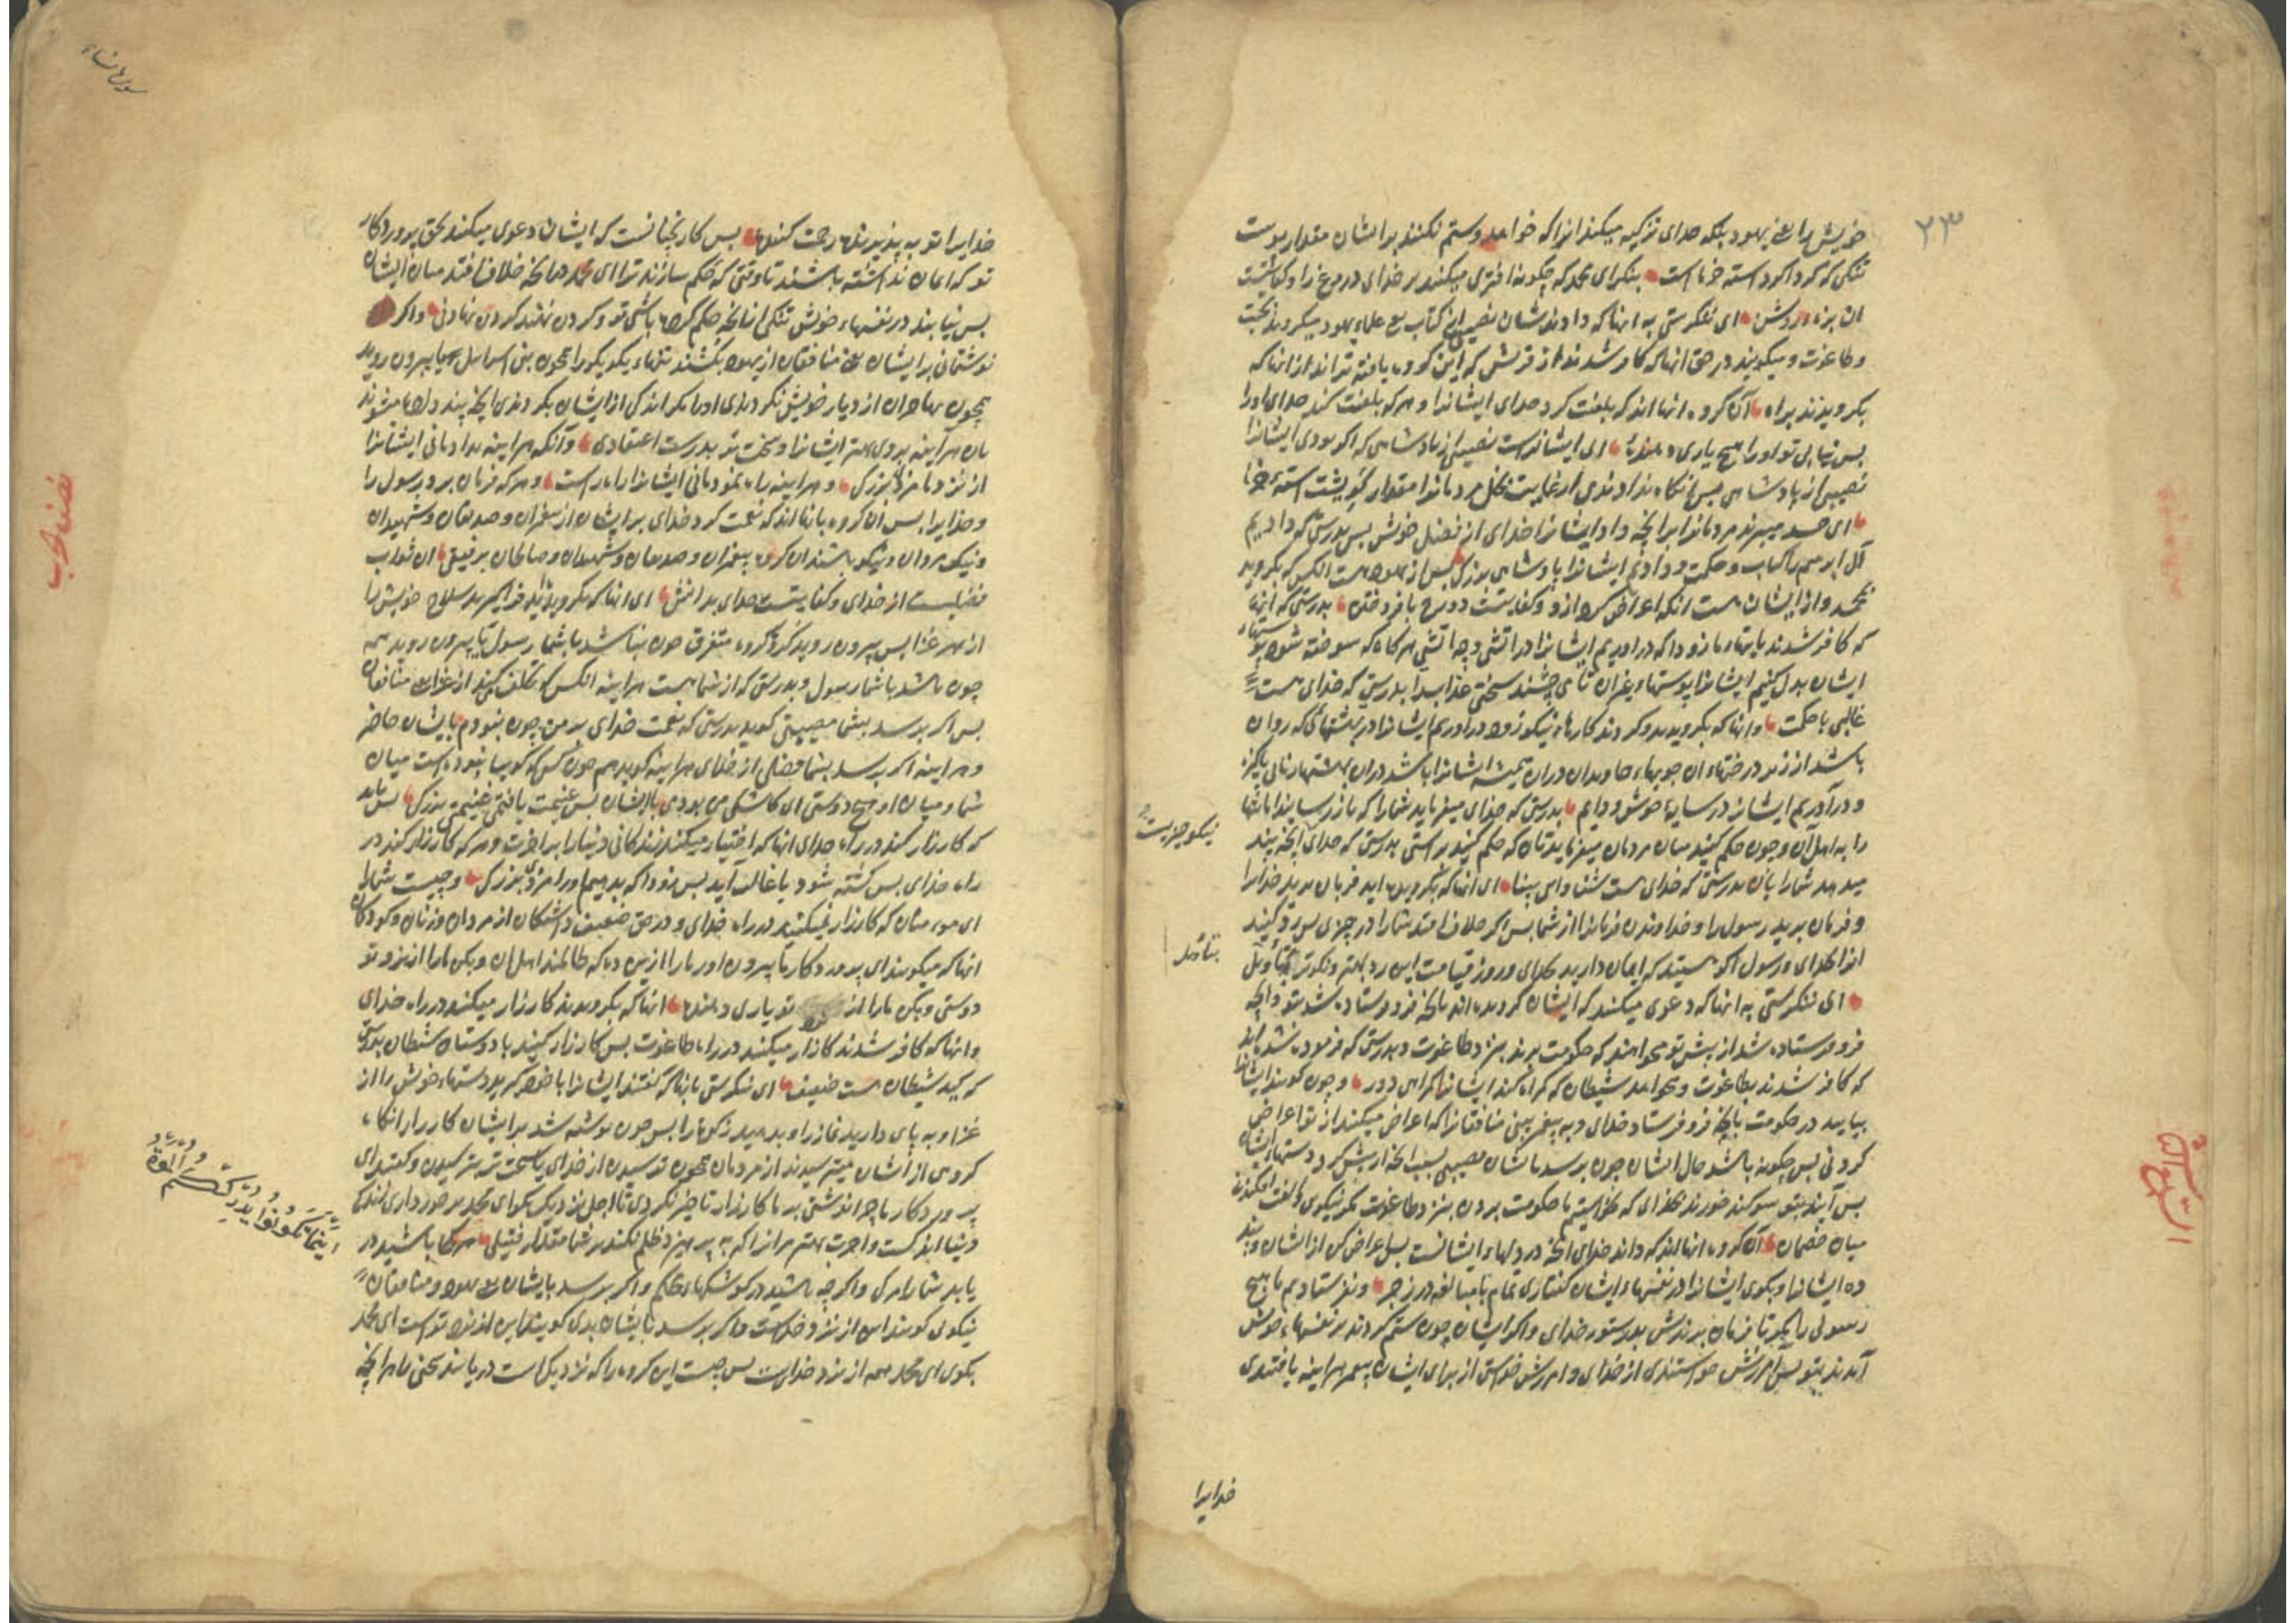 ۲۳
خویش را یعنی یهود بلکه خدای تزکیه میکند انرا که خواهد وستم نکنند بر ایشان مقدار پوست
تنکی که کرداکرد استه خرماست بنکر ای محمد که چکونه افتری میکنند بر خدای دروغ را وکفایتست
ان بزه روشن ای ننکرستی به انها که داده شدشان نصیبی از کتاب یعنی علماء یهود میکروند بجبت
وطاغوت ومیکویند در حق انها که کافر شدند از قریش که این کروه راه یافته تراند از انها که
بکرویدند براه آن کروه انها اند که بلعنت کرد خدای ایشانرا وهر که بلعنت کند خدای اورا
پس نیابی تو اورا هیچ یاری دهنده ای ایشانراست نصیبی از پادشاهی که اکر بودی ایشانرا
نصیبی از پادشاهی پس انکاه ندادندی از غایت بخل مردمانرا مقدار کو پشت استه خرما
ای حسد میبرند مردمانرا بر انچه داد ایشانرا خدای از فضل خویش پس بدرستی که دادیم
آل ابرهیم را کتاب وحکمت ودادیم ایشانرا پادشاهی بزرک پس از یهود هست انکس که بکروید
بمحمد واز ایشان هست انکه اعراض کرد ازو وکفایتست دوزخ بافروختن بدرستی که انها
که کافر شدند بایتهاء ما زود اکه در اوریم ایشانرا در اتشی وچه اتشی هر کاه که سوخته شود پوستهاء
ایشان بدل کنیم ایشانرا پوستهاء غیر ان تا می چشند سختی عذابرا بدرستی که خدای هست
غالبی با حکمت وانها که بکرویدند وکردند کارهاء نیکو زود در اوریم ایشانرا در بهشتهائی که روان
باشد از زیر درختهاء ان جویهاء جاویدان در ان همیشه ایشانرا باشد در ان بهشتها زنانی پاکیزه
ودر آوریم ایشانرا در سایهٔ خوش ودایم بدرستی که خدای میفرماید شمارا که باز رسانید امانتها
را به اهل آن وچون حکم کنید میان مردمان میفرمایدتان که حکم کنید براستی بدرستی که خدای نیکو چیزیست انچه پند
میدهد شمارا بان بدرستی که خدای هست شنوای بینا ای انها که بکرویده اید فرمان برید خدایرا
وفرمان برید رسول را وخداوندان فرمانرا از شما پس اکر خلاف افتد شمارا در چیزی پس رد کنید
انرا بخدای ورسول اکر هستید که ایمان دارید بخدای وروز قیامت این رد بهتر ونیکوتر بتأویل
ای ننکرستی به انها که دعوی میکنند که ایشان کرویده اند بانچه فرو فرستاده شد بتو وانچه
فرو فرستاده شد از پیش تو میخواهند که حکومت برند بنزد طاغوت وبدرستی که فرموده شده اند
که کافر شدند بطاغوت ومیخواهد شیطان که کمراه کند ایشانرا کمراهی دور وچون کویند ایشانرا
بیایید در حکومت بانچه فرو فرستاد خدای وبه پیغمبر بینی منافقانرا که اعراض میکنند از تو اعراض
کردنی پس چکونه باشد حال ایشان چون برسد باشان مصیبتی بسبب انچه از پیش کرد دستهاء ایشان
پس آیند بتو سوکند خورند بخدای که نخواستیم با حکومت بردن بنزد طاغوت مکر نیکوی والفت افکندن
میان خصمان آن کروه انها اند که داند خدای انچه در دلهاء ایشانست پس اعراض کن از ایشان وپند
ده ایشانرا وبکوی ایشانرا در نفسهاء ایشان کفتاری تمام با مبالغه در زجر ونفرستادیم ما هیچ
رسولی را مکر تا فرمان برندش بدستور خدای واکر ایشان چون ستم کردند بر نفسهاء خویش
آمدند بتو پس آمرزش خواستندی از خدای وامرزش خواستی از برای ایشان پیغمبر هراینه یافتندی
نیکو چیزیست
بتاویل
خدایرا
سورة نساء
نصف حزب
خدایرا توبه پذیرنده رحمت کننده پس کار نچنانست که ایشان دعوی میکنند بحق پروردکار
تو که ایمان نداشته باشند تا وقتی که حکم سازند ترا ای محمد در انچه خلاف افتد میان ایشان
پس نیابند در نفسهاء خویش تنکی از انچه حکم کرده باشی تو وکردن نهند کردن نهادنی واکر
نوشتمانی بر ایشان یعنی منافقان از یهود بکشند تنهاء یکدیکررا همچون بنی اسرائیل یا بیرون روید
همچون مهاجران از دیار خویش نکردندی اورا مکر اندکی از ایشان واکر کردندی انچه پند داده میشوند
بان هرآینه بودی بهتر ایشانرا وسخت تر بدرست اعتقادی وآنکه هراینه بدادمانی ایشانرا
از نزد ما مزد بزرک وهراینه راه نمودمانی ایشانرا راه راست وهر که فرمان برد رسول را
وخدایرا پس آن کروه با انها اند که نعمت کرد خدای بر ایشان از پیغمبران وصدیقان وشهیدان
ونیکو مردان ونیکو باشند ان کروه پیغمبران وصدیقان وشهیدان وصالحان برفیقی ان ثواب
فضلیست از خدای وکفایتست خدای بدانش ای انها که بکرویدید فراکیرید سلاح خویش را
از بهر غزا پس بیرون روید کروه کروه متفرق چون نباشد با شما رسول یا بیرون روید همه
چون باشد با شما رسول وبدرستی که از شما هست هراینه انکس که تخلف کند از غزا یعنی منافقان
پس اکر برسد بشما مصیبتی کوید بدرستی که نعمت خدای بر من چون نبودم با ایشان حاضر
وهراینه اکر برسد بشما فضلی از خدای هراینه کوید هم چون کس که کوییا نبوده است میان
شما ومیان او هیچ دوستی ای کاشکی من بودمی با ایشان پس غنیمت یافتمی غنیمتی بزرک پس باید
که کارزار کند در راه خدای انها که اختیار میکنند زندکانی دنیارا براخرت وهر که کارزار کند در
راه خدای پس کشته شود یا غالب آید پس زود اکه بدهیم اورا مزدی بزرک وچیست شمارا
ای مومنان که کارزار نمیکنید در راه خدای ودر حق ضعیف داشتکان از مردان وزنان وکودکان
انها که میکویند ای پروردکار ما بیرون اور مارا ازین ده که ظالمند اهل ان وبکن مارا از نزد تو
دوستی وبکن مارا از نزد تو یاری دهنده انها که بکرویدند کارزار میکنند در راه خدای
وانها که کافر شدند کارزار میکنند در راه طاغوت پس کارزار کنید با دوستان شیطان بدرستی
که کید شیطان هست ضعیف ای ننکرستی بانها که کفتند ایشانرا باز کیرید دستهاء خویش را از
غزا وبه پای دارید نماز را وبدهید زکوة را پس چون نوشته شد بر ایشان کارزار انکاه
کروهی از ایشان میترسیدند از مردمان همچون ترسیدن از خدای یا سخت تر ترسیدن وکفتند ای
پروردکار ما چرا نوشتی بر ما کارزار تاخیر نکردی تا اجل نزدیک بکو ای محمد برخورداری
دنیا اندکست واخرت بهتر مر انرا که به پرهیزد وظلم نکنند بر شما مقدار فتیلی هر کجا باشید در
یابد شمارا مرک واکر چه باشید در کوشکهاء محکم واکر برسد بایشان یعنی یهود ومنافقان
نیکوی کویند این از نزد خداست واکر برسد بایشان بدی کویند این از نزد تواست ای محمد
بکوی ای محمد همه از نزد خدایست پس چیست این کروه را که نزدیک است دریابند سخنی را هر انچه
اینما تکونوا یدرککم الموت